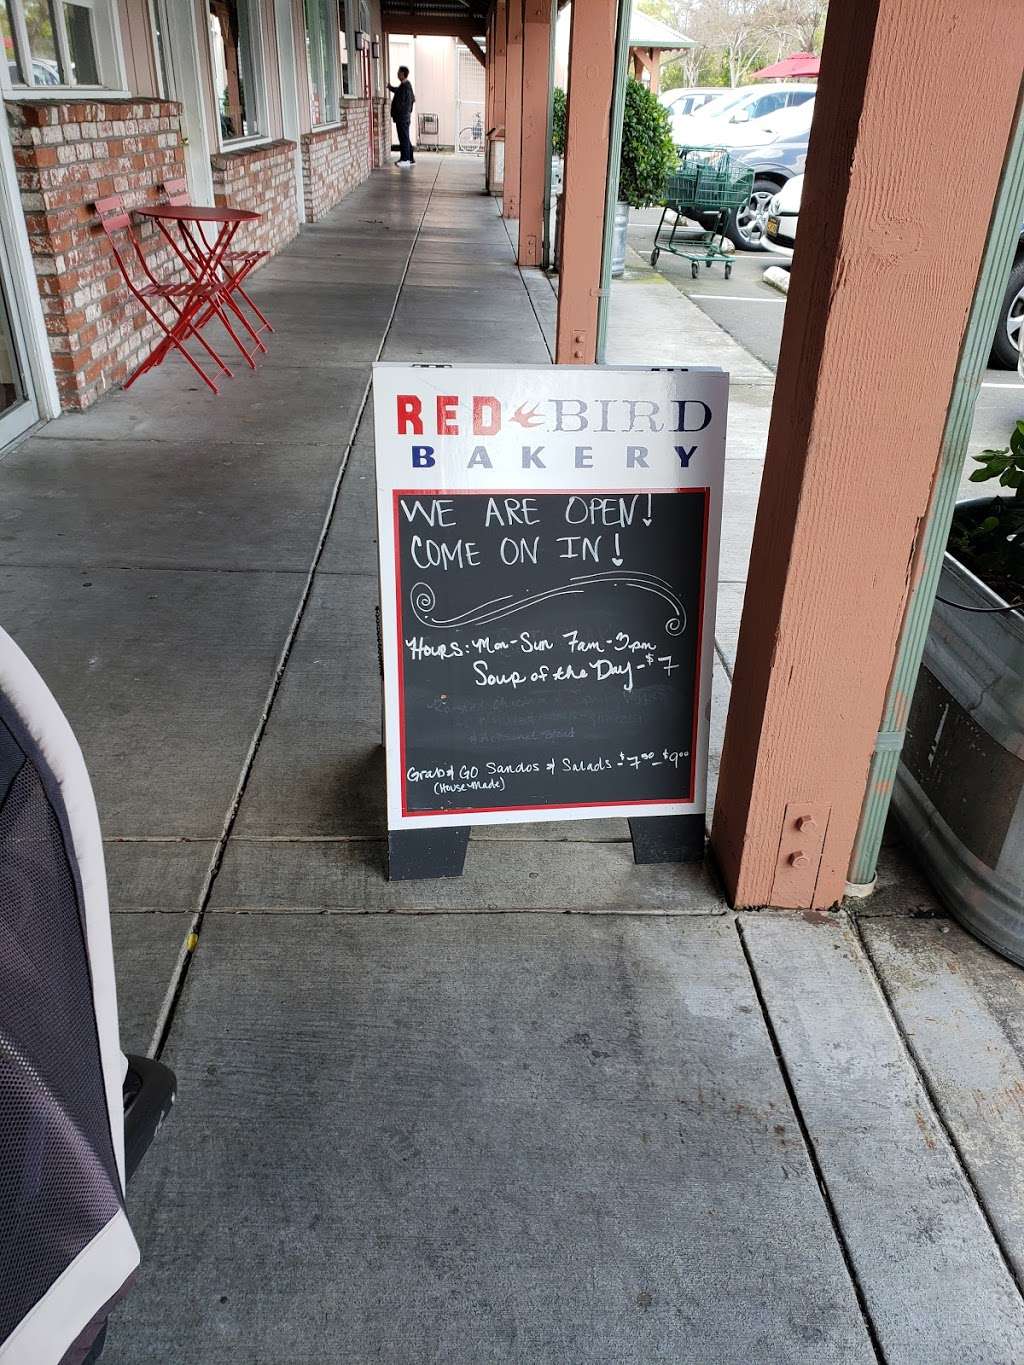 RED BIRD
BAKERY
WE ARE OPEN!
COME ON IN!
HOURS: Mon-Sun 7am-3pm
Soup of the Day - $7
Grab & GO Sandos & Salads - $7.50 - $9.00
(House Made)